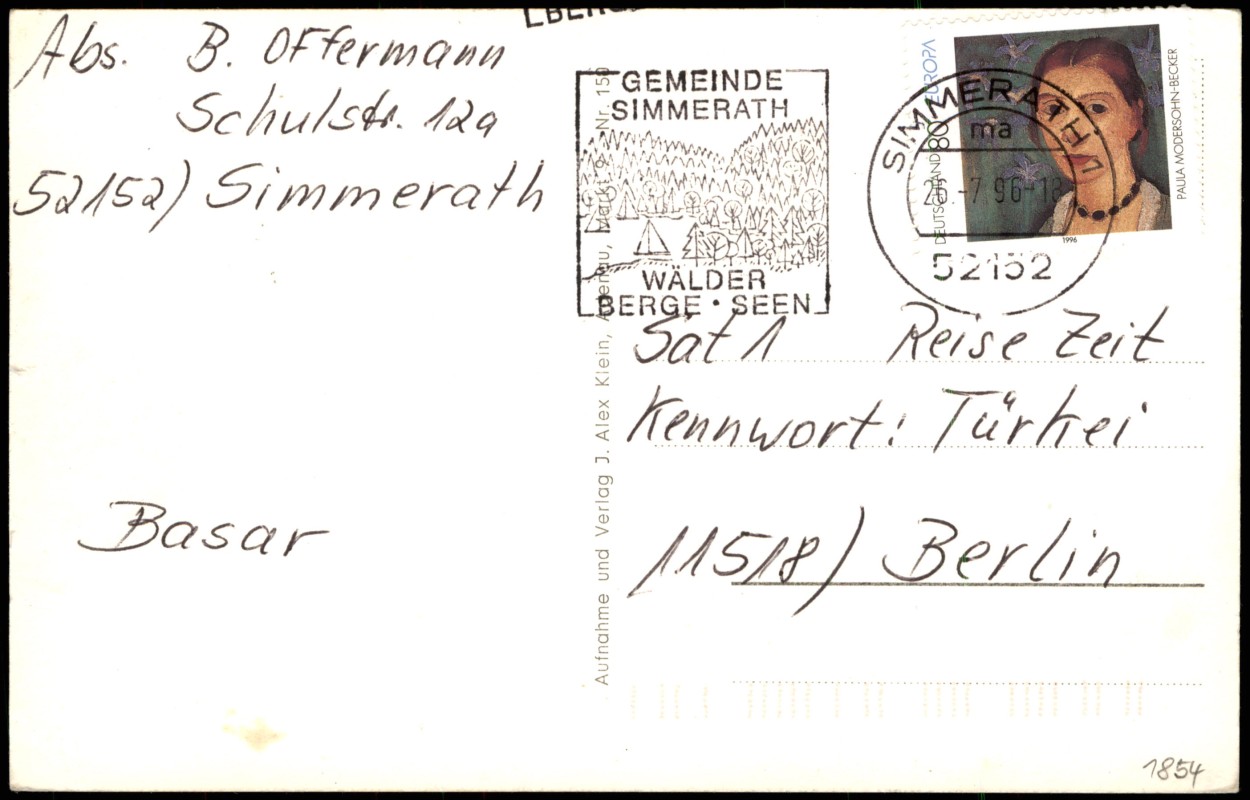 Abs. B. Offermann
Schulstr. 12a
52152) Simmerath
Basar
GEMEINDE
SIMMERATH
WÄLDER
BERGE • SEEN
SIMMERATH 1
ma
-7.96-18
52152
EUROPA
DEUTSCHLAND 80
PAULA MODERSOHN-BECKER
1996
Aufnahme und Verlag J. Alex Klein,
Nr. 159
Sat 1 Reise Zeit
Kennwort: Türkei
11518) Berlin
1854